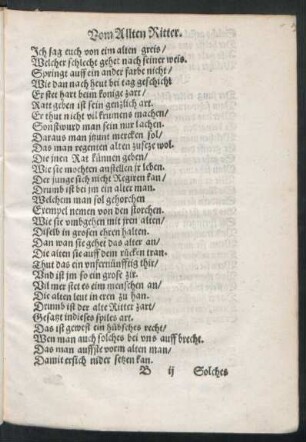 Vom Allten Ritter.
Ich sag euch von eim alten greis/
Welcher schlecht gehet nach seiner weis.
Springt auff ein ander farbe nicht/
Wie dan nach heut bei tag geschicht
Er stet hart beim konige zart/
Ratt geben ist sein genzlich art.
Er thut nicht vil krumens machen/
Sonst wurd man sein nur lachen.
Daraus man jnunt mercken sol/
Das man regenten alten zuseze wol.
Die jnen Rat künnen geben/
Wie sie mochten anstellen jr leben.
Der junge sich nicht Regiren kan/
Drumb ist bei jm ein alter man.
Welchem man sol gehorchen
Exempel nemen von den storchen.
Wie sie umbgehen mit jren alten/
Diselb in grosen ehren halten.
Dan wan sie gehet das alter an/
Die alten sie auff dem rücken tran.
Thut das ein unfernünfftig thir/
Und ist jm so ein grose zir.
Vil mer stet es eim menschen an/
Die alten leut in eren zu han.
Drumb ist der alte Ritter zart/
Gesatzt in dieses spiles art.
Das ist gewest ein hübsches recht/
Wen man auch solches bei uns auff brecht.
Das man auffste vorm alten man/
Damit er sich nider setzen kan.
B ij Solches